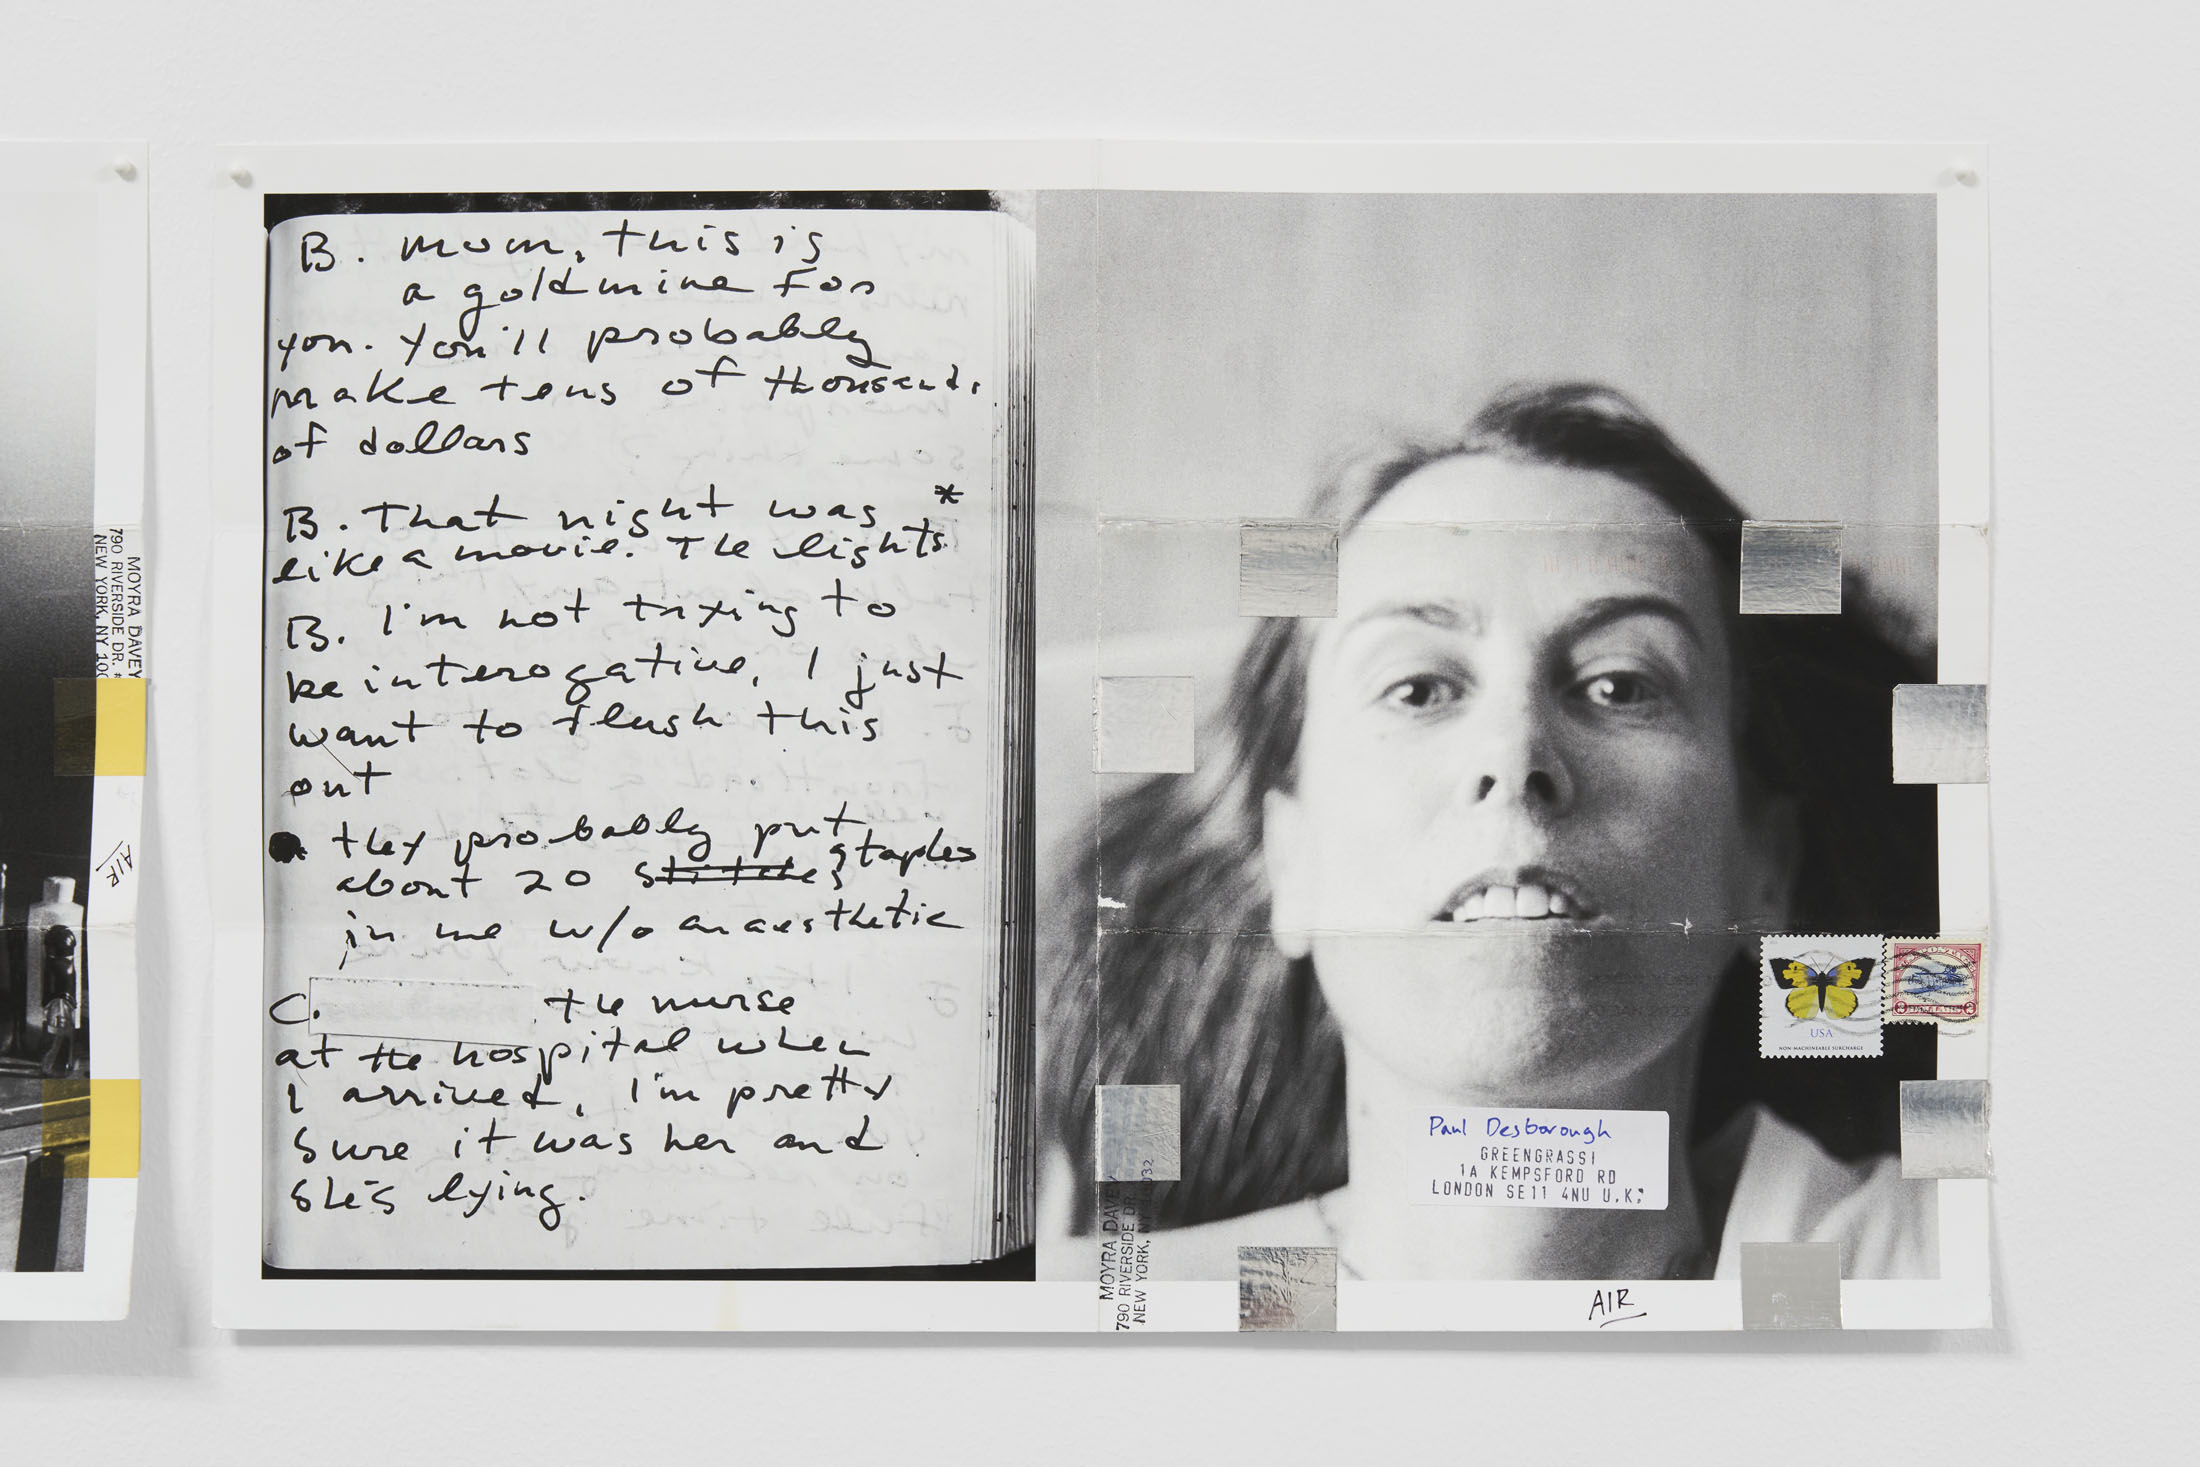 B. Mom, this is
a goldmine for
you. You'll probably
make tens of thousands
of dollars
B. That night was *
like a movie. The lights
B. I'm not trying to
be interogative, I just
want to flush this
out
they probably put
about 20 stitches staples
in me w/o anaesthetic
C. the nurse
at the hospital when
I arrived, I'm pretty
sure it was her and
she's lying.
MOYRA DAVEY
790 RIVERSIDE DR.
NEW YORK, NY 10
AIR
USA
NON-MACHINEABLE SURCHARGE
Paul Desborough
GREENGRASSI
1A KEMPSFORD RD
LONDON SE11 4NU U.K.
MOYRA DAVEY
790 RIVERSIDE DR.
NEW YORK, NY 10032
AIR